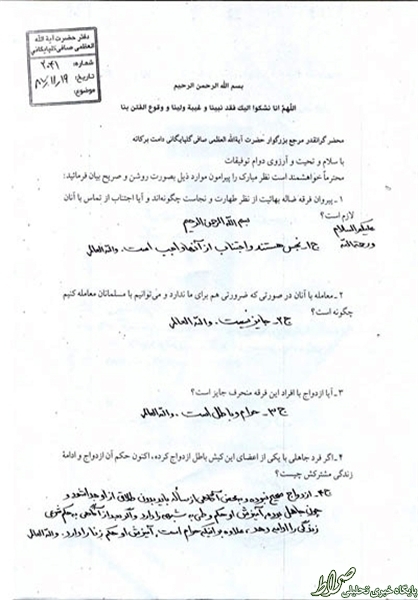 دفتر حضرت آیة الله
العظمی صافی گلپایگانی
شماره: ۲۰۴۱
تاریخ: ۸۷/۱۱/۱۹
موضوع:
بسم الله الرحمن الرحیم
اللّهمّ انا نشکوا الیک فقد نبینا و غیبة ولینا و وقوع الفتن بنا
محضر گرانقدر مرجع بزرگوار حضرت آیةالله العظمی صافی گلپایگانی دامت برکاته
با سلام و تحیت و آرزوی دوام توفیقات
محترماً خواهشمند است نظر مبارک را پیرامون موارد ذیل بصورت روشن و صریح بیان فرمائید:
۱ـ پیروان فرقه ضاله بهائیت از نظر طهارت و نجاست چگونه‌اند و آیا اجتناب از تماس با آنان
لازم است؟
بسم الله الرحمن الرحیم
علیکم السلام
و رحمة الله
ج۱ـ نجس هستند و اجتناب از آنها واجب است. والله العالم
۲ـ معامله با آنان در صورتی که ضرورتی هم برای ما ندارد و می‌توانیم با مسلمانان معامله کنیم
چگونه است؟
ج۲ـ جایز نیست. والله العالم
۳ـ آیا ازدواج با افراد این فرقه منحرف جایز است؟
ج۳ـ حرام و باطل است. والله العالم
۴ـ اگر فرد جاهلی با یکی از اعضای این کیش باطل ازدواج کرده، اکنون حکم آن ازدواج و ادامة
زندگی مشترکش چیست؟
ج۴ـ ازدواج صحیح نبوده و بمحض آگاهی از مسأله باید بدون طلاق از او جدا شود و
چون جاهل بوده آمیزش او حکم وطی به شبهه را دارد و اگر بعد از آگاهی به حکم شرعی
زندگی را ادامه دهد، علاوه بر اینکه حرام است، آمیزش او حکم زنا را دارد. والله العالم
صراط
پایگاه خبری تحلیلی